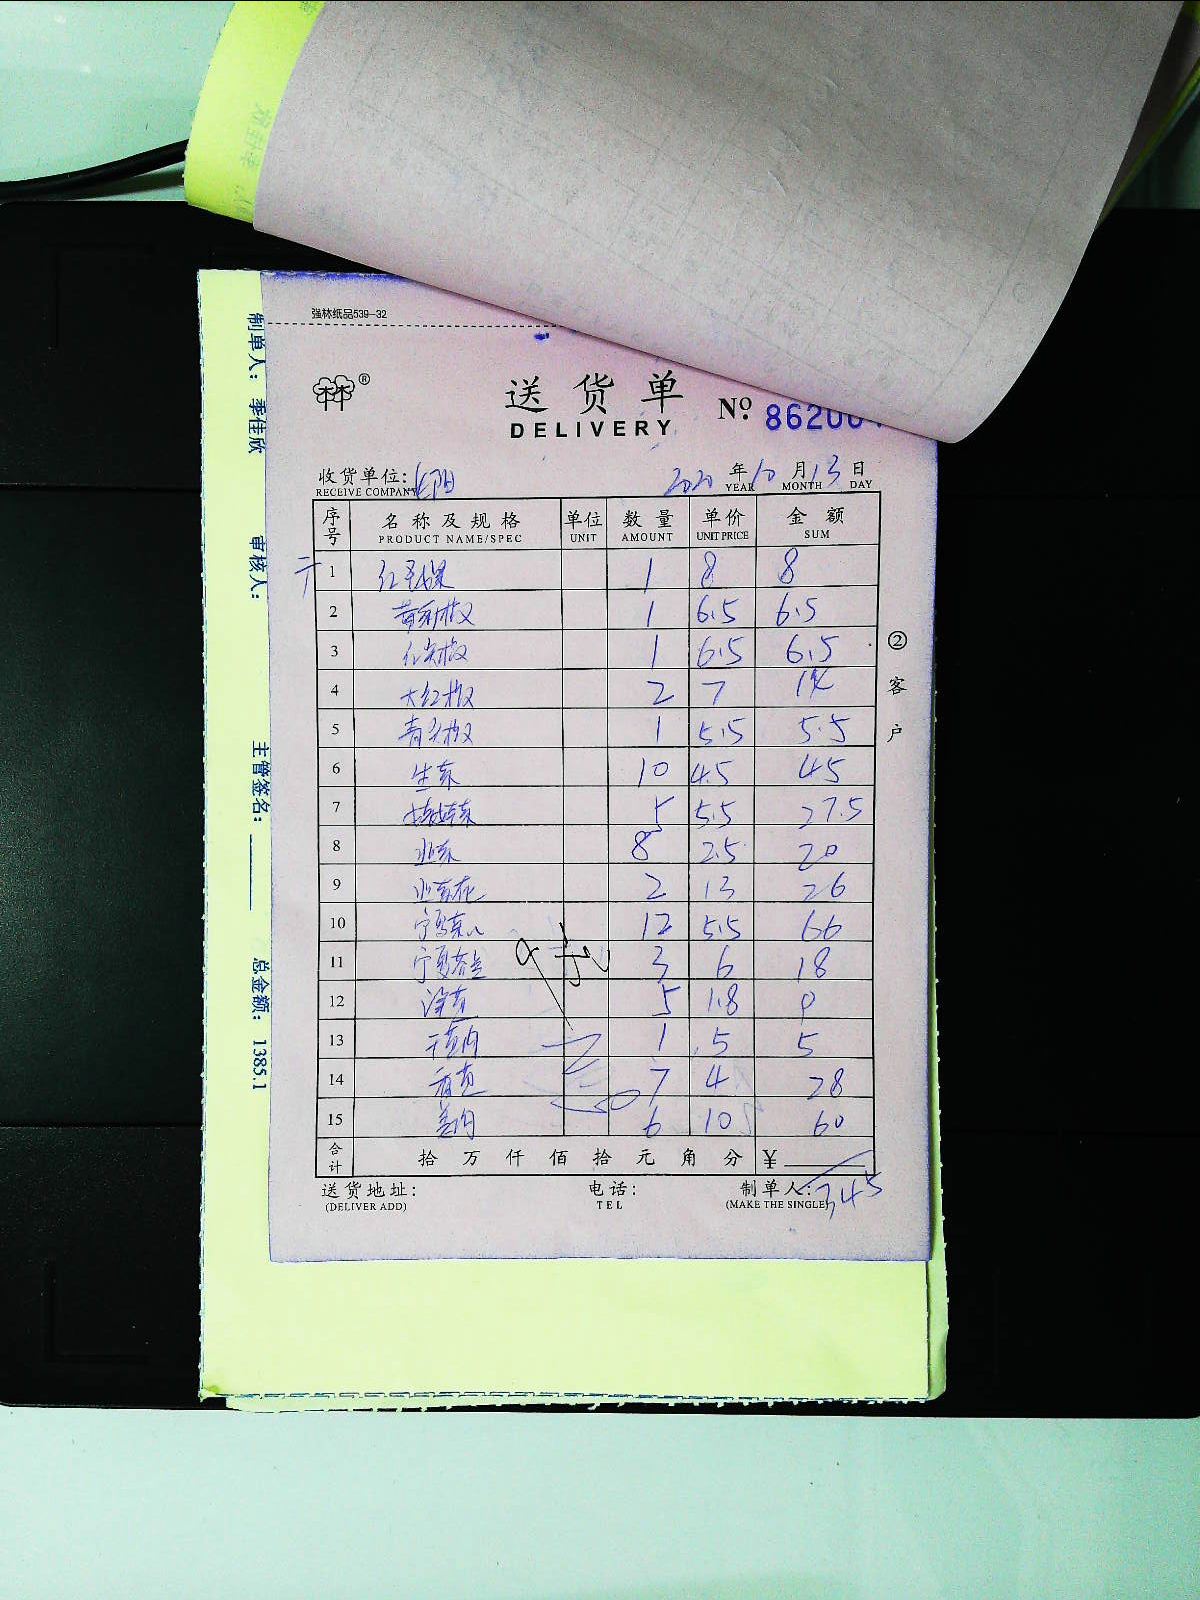 强林纸品539-32
®
送货单
DELIVERY
No. 86200
收货单位:
RECEIVE COMPAN
2020 年 10 月 13 日
YEAR MONTH DAY
序号 名称及规格 单位 数量 单价 金额
PRODUCT NAME/SPEC UNIT AMOUNT UNIT PRICE SUM
1 1 8 8
2 1 6.5 6.5
3 红尖椒 1 6.5 6.5
4 大红椒 2 7 14
5 青尖椒 1 5.5 5.5
6 生菜 10 4.5 45
7 娃娃菜 5 5.5 27.5
8 8 2.5 20
9 2 13 26
10 宁夏菜心 12 5.5 66
11 宁夏芥兰 3 6 18
12 5 1.8 9
13 1 5 5
14 香芹 7 4 28
15 姜肉 6 10 60
合计 拾 万 仟 佰 拾 元 角 分 ¥
345
送货地址: 电话: 制单人:
(DELIVER ADD) TEL (MAKE THE SINGLE)
②客户
制单人: 季佳欣 审核人: 主管签名: 总金额: 1385.1